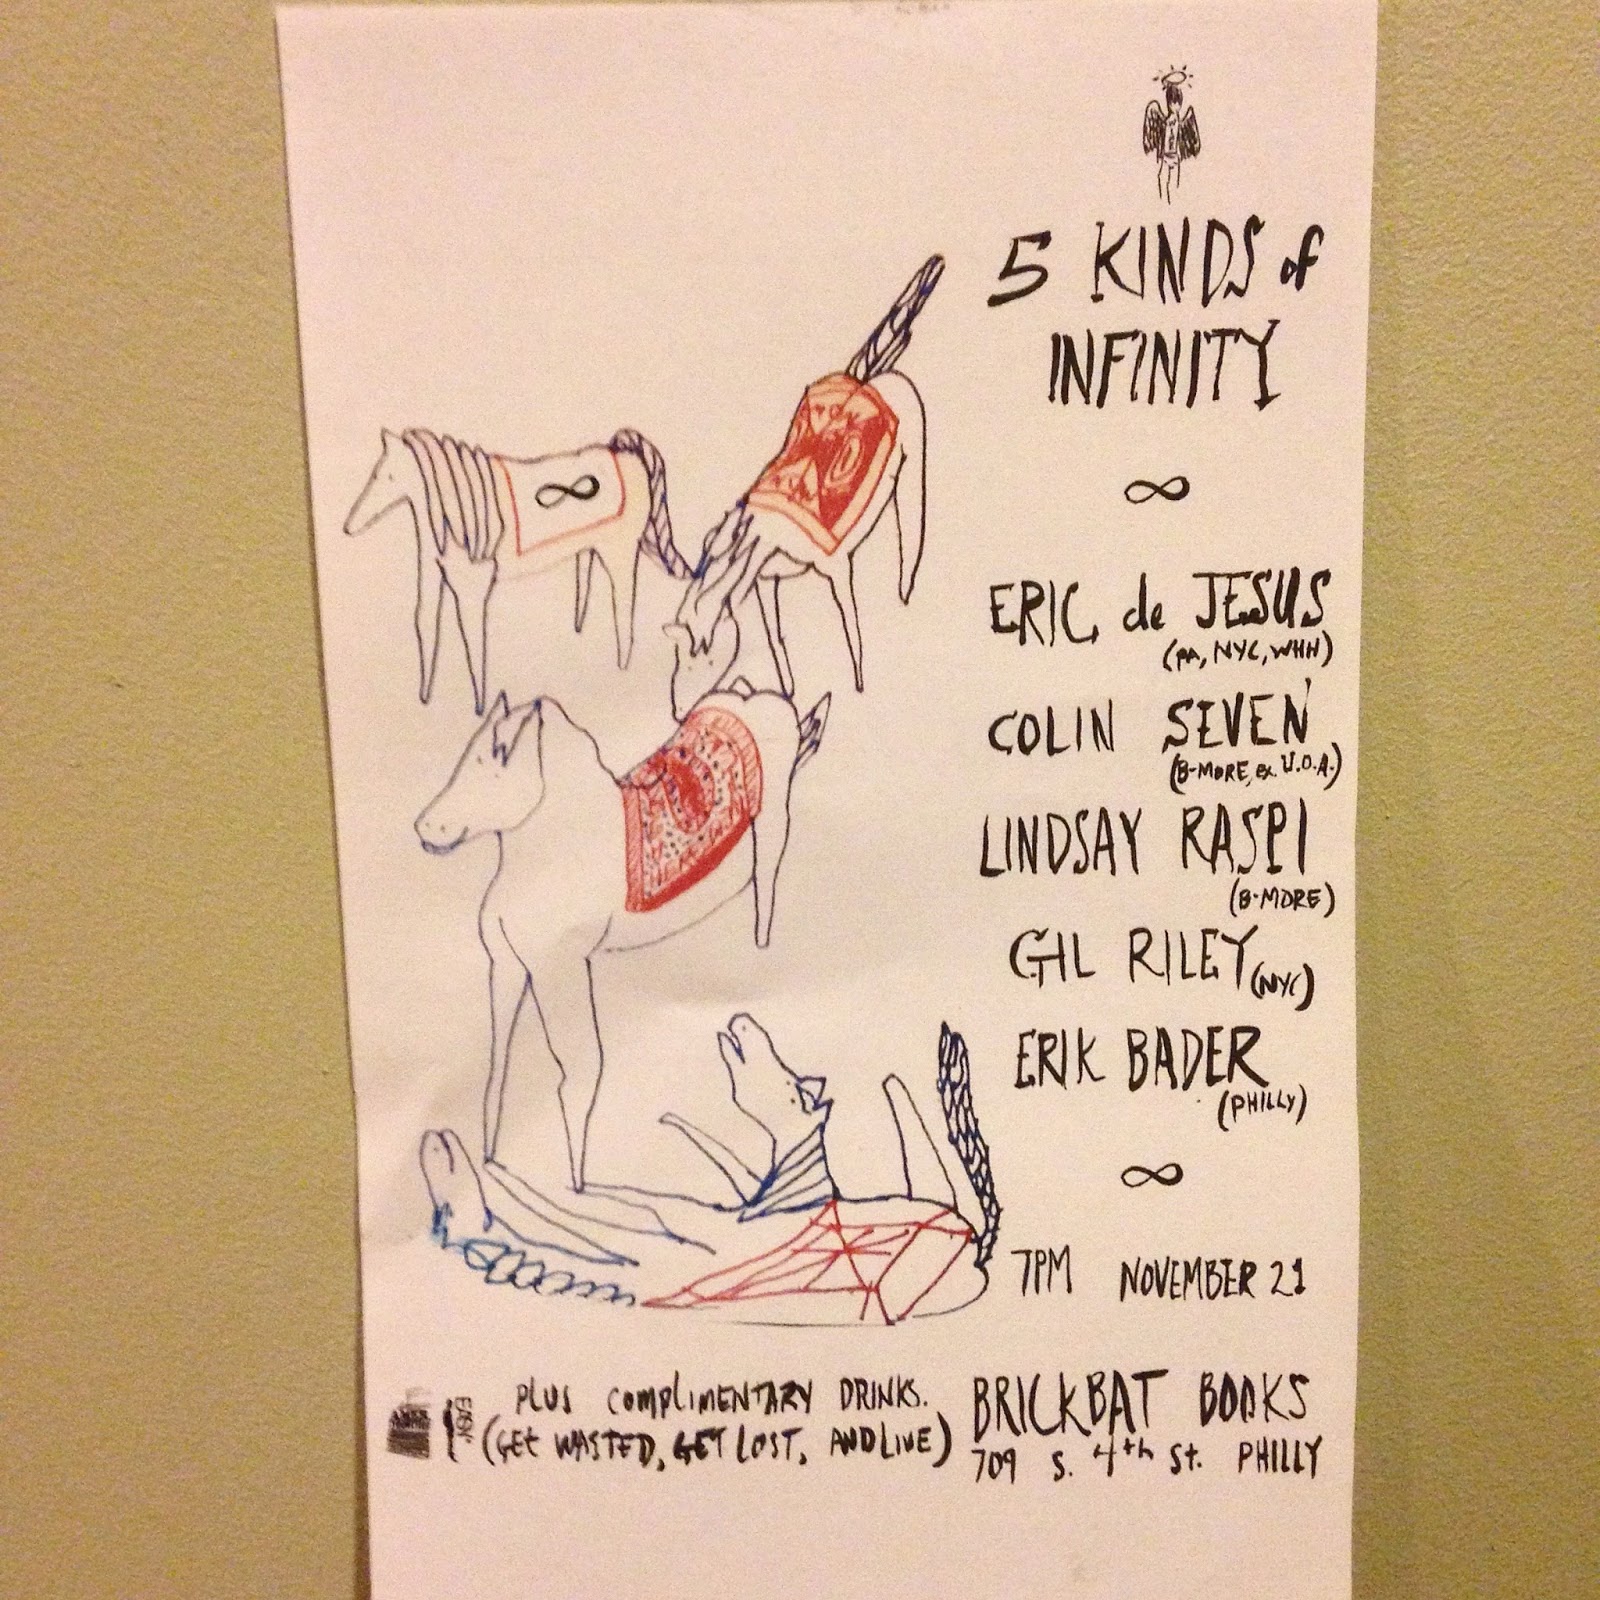 5 KINDS of
INFINITY
∞
∞
ERIC de JESUS
(PA, NYC, WHH)
COLIN SEVEN
(B-MORE, ex. U.O.A.)
LINDSAY RASPI
(B-MORE)
GIL RILEY (NYC)
ERIK BADER
(PHILLY)
∞
7PM NOVEMBER 21
BRICKBAT BOOKS
709 S. 4th St. PHILLY
PLUS COMPLIMENTARY DRINKS.
(GET WASTED, GET LOST, AND LIVE)
EASY